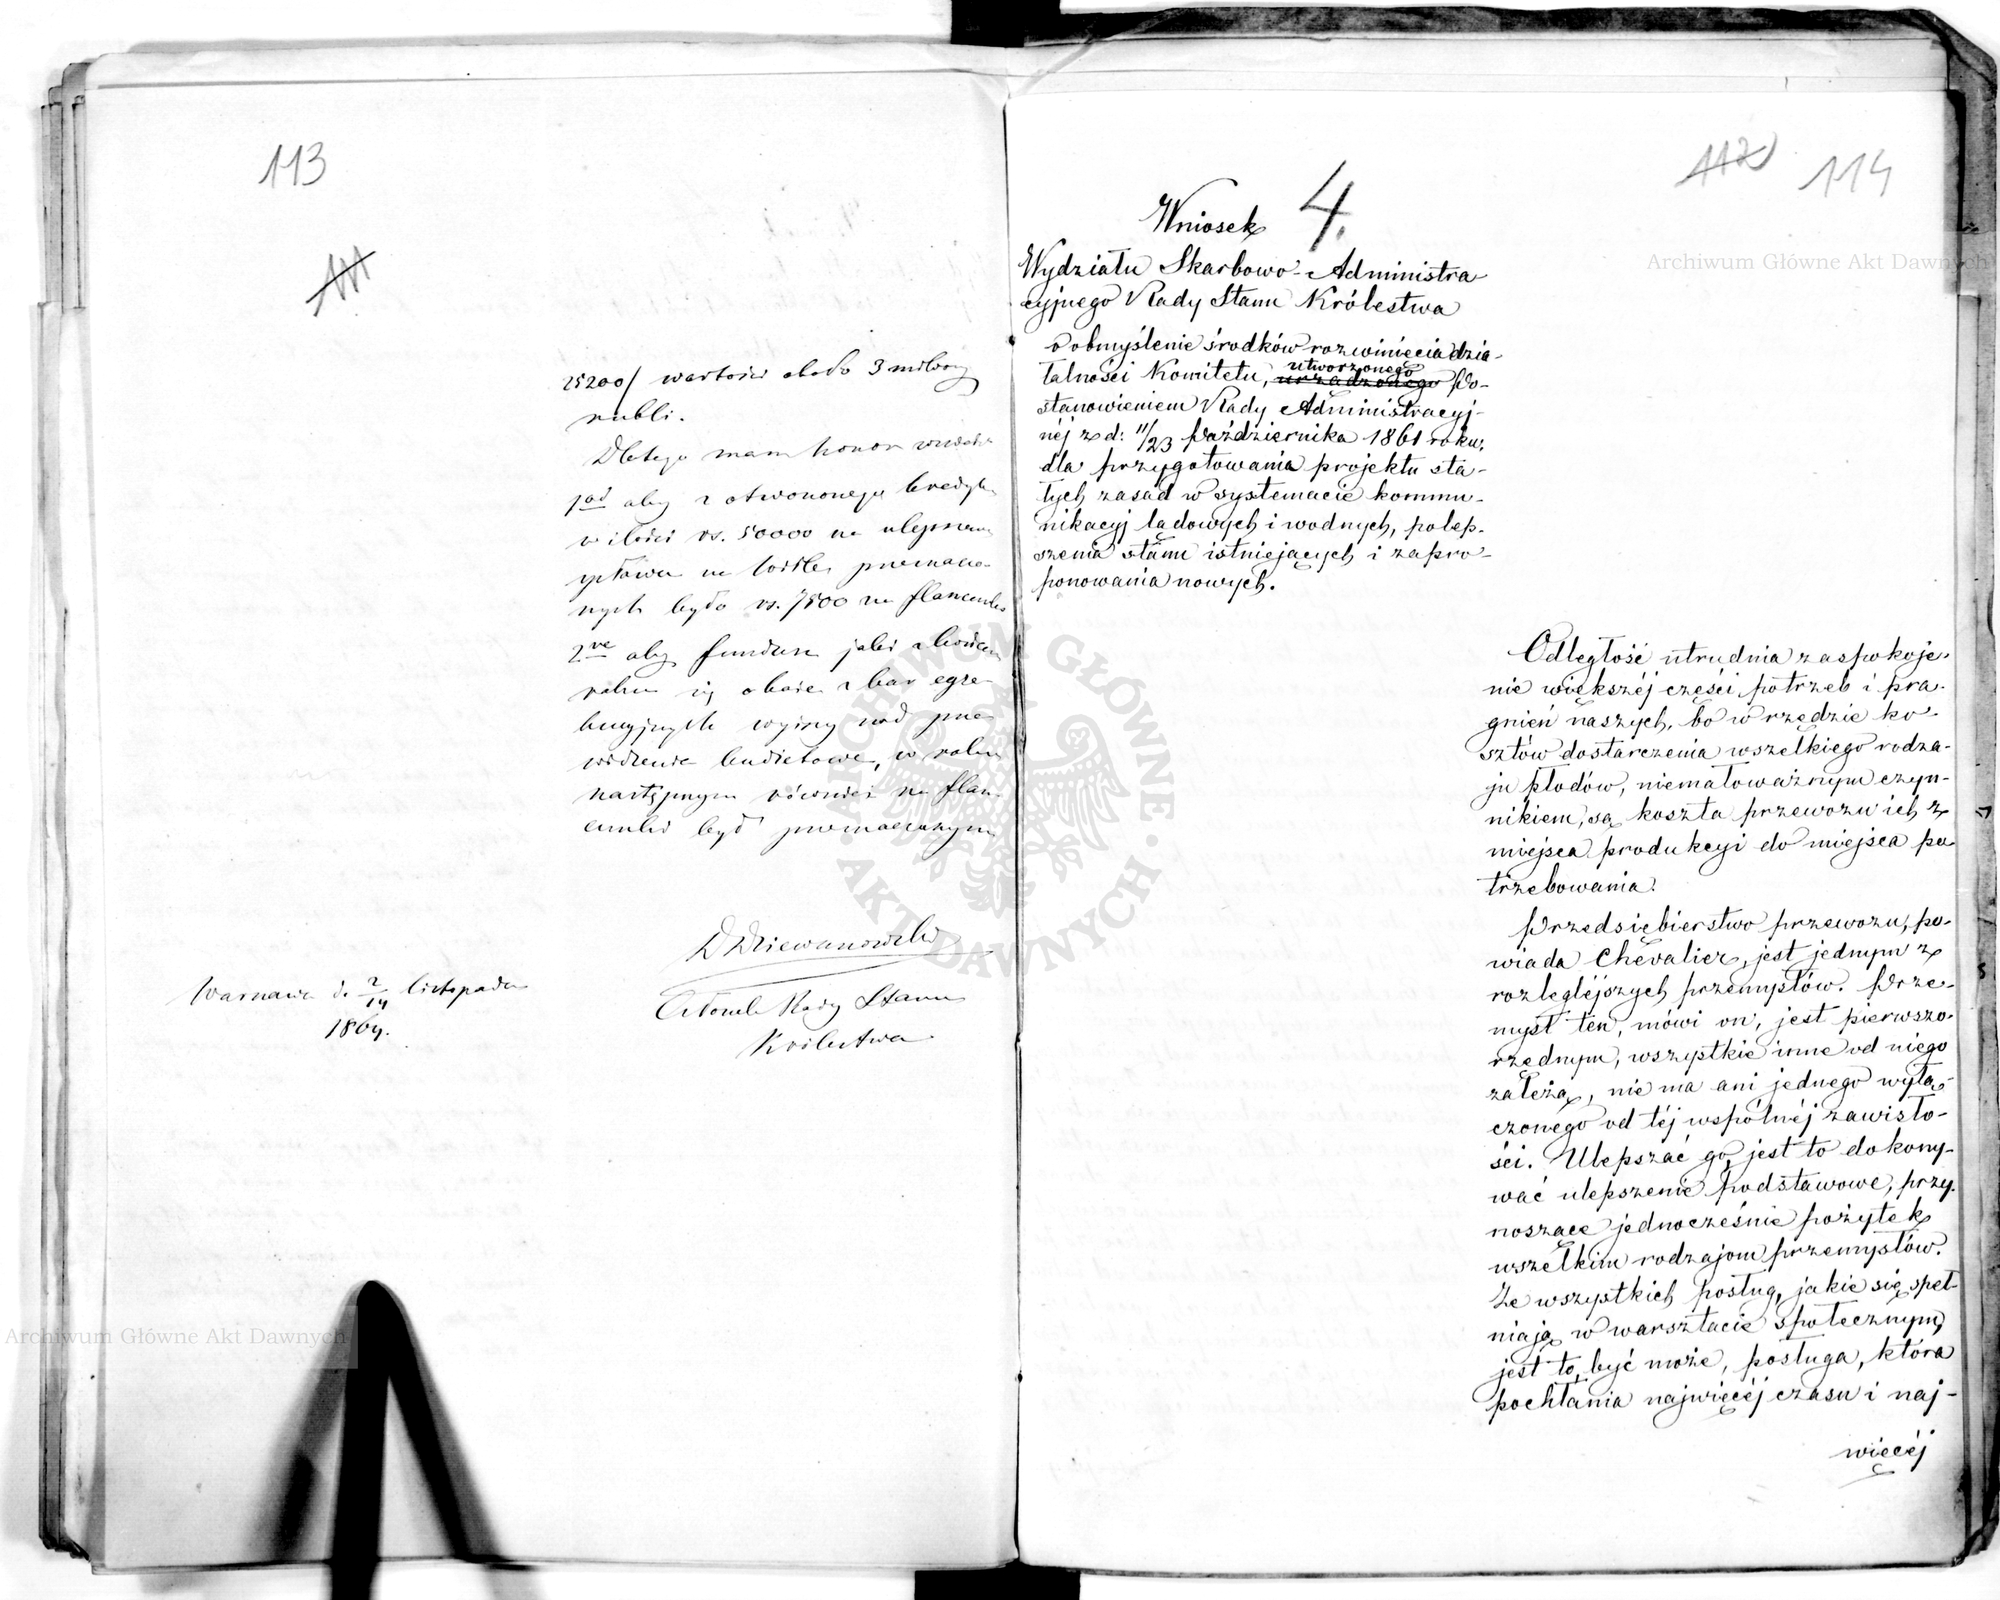 113
25200/ wartości około 3 miliony
rubli.
Dlatego mam honor wnieść
1od aby z otworzonego kredytu
w ilości rs. 50000 na ulepszenie
spławu na Wiśle, przeznaczo-
nych było rs. 7500 na
2re aby fundusz jaki z końcem
roku się okaże z kar egze-
kucyjnych wyższy nad prze
widzenie budżetowe, w roku
następnym również na
był przeznaczonym
D Dziewanowski
Członek Rady Stanu
Królestwa
Warszawa d. 2/14 listopada
1864.
112 114
Wniosek 4.
Wydziału Skarbowo-Administra
cyjnego Rady Stanu Królestwa
o obmyślenie środków rozwinięcia dzia-
łalności Komitetu, urządzonego utworzonego Po-
stanowieniem Rady Administracyj-
nej z d: 11/23 Października 1861 roku,
dla przygotowania projektu sta-
łych zasad w systemacie kommu-
nikacyj lądowych i wodnych, polep-
szenia stanu istniejących i zapro-
ponowania nowych.
Odległość utrudnia zaspokoje-
nie większéj części potrzeb i pra-
gnień naszych, bo w rzędzie ko-
sztów dostarczenia wszelkiego rodza-
ju płodów, niemałoważnym czyn-
nikiem, są koszta przewozu ich z
miejsca produkcyi do miejsca po
trzebowania.
Przedsiębierstwo przewozu, po-
wiada Chevalier, jest jednym z
rozleglejszych przemysłów. Prze-
mysł ten, mówi on, jest pierwszo-
rzędnym, wszystkie inne od niego
zależą, nie ma ani jednego wyłą-
czonego od téj wspólnéj zawisło-
ści. Ulepszać go, jest to dokony-
wać ulepszenie podstawowe, przy-
noszące jednocześnie pożytek
wszelkim rodzajom przemysłów.
Ze wszystkich posług, jakie się speł-
niają w warsztacie społecznym,
jest to, być może, posługa, która
pochłania najwięcéj czasu i naj-
więcéj
Archiwum Główne Akt Dawnych
Archiwum Główne Akt Dawnych
ARCHIWUM GŁÓWNE · AKT DAWNYCH ·